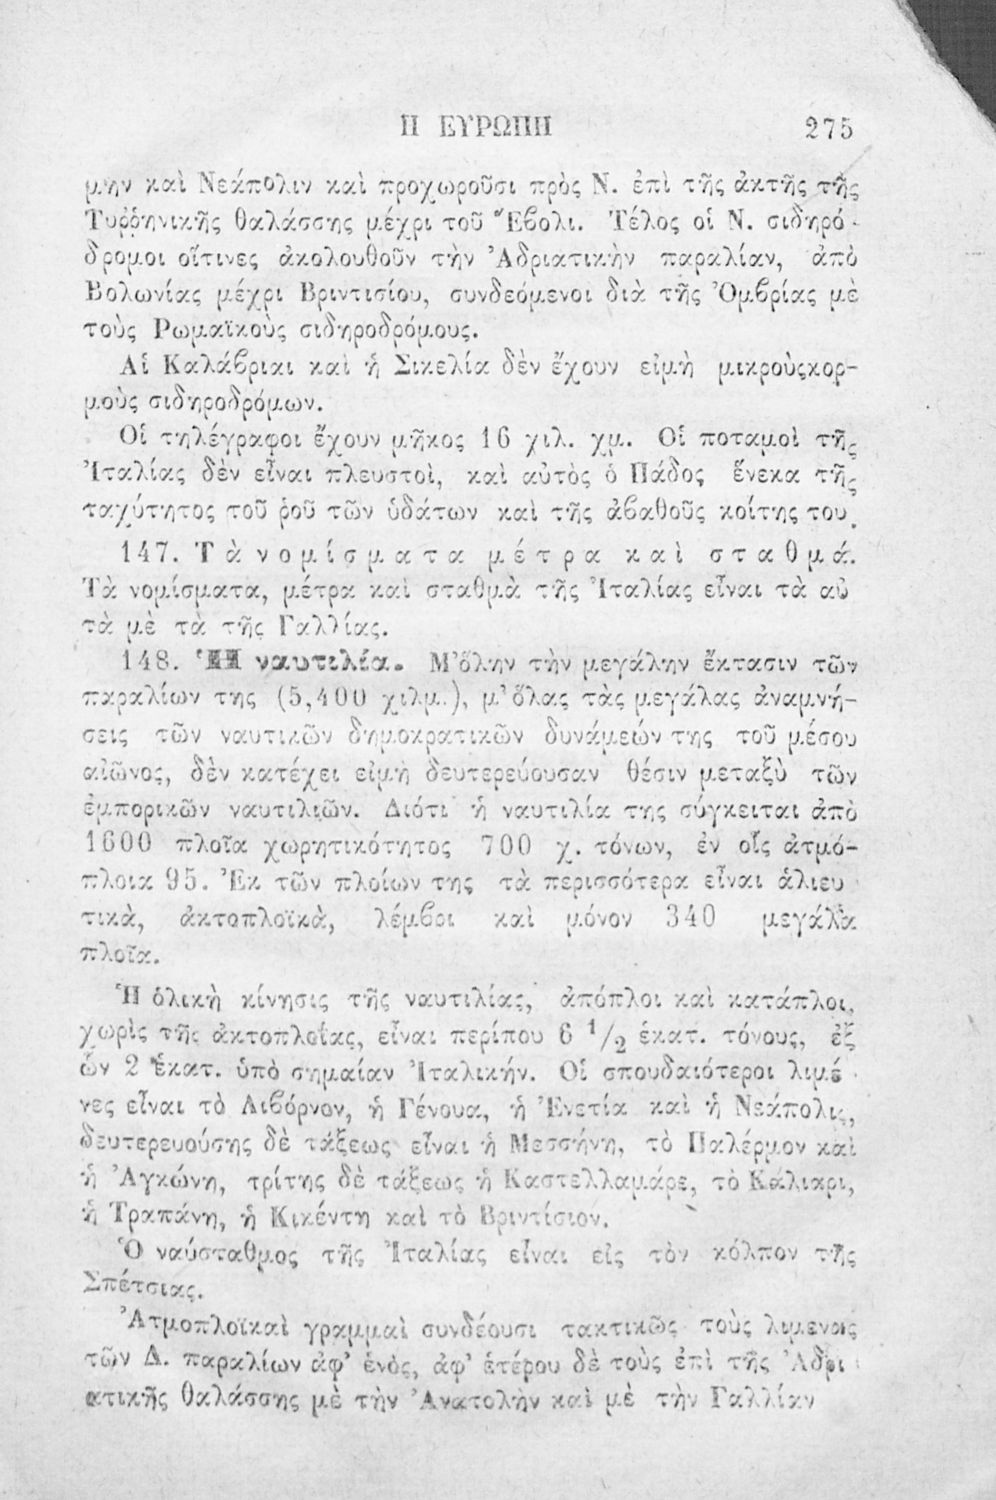 Η ΕΥΡΩΠΗ 275
μην καὶ Νεάπολιν καὶ προχωροῦσι πρὸς Ν. ἐπὶ τῆς ἀκτῆς τῆς
Τυῤῥηνικῆς θαλάσσης μέχρι τοῦ Ἔβολι. Τέλος οἱ Ν. σιδηρό-
δρομοι οἵτινες ἀκολουθοῦν τὴν Ἀδριατικὴν παραλίαν, ἀπὸ
Βολωνίας μέχρι Βριντισίου, συνδεόμενοι διὰ τῆς Ὀμβρίας μὲ
τοὺς Ρωμαϊκοὺς σιδηροδρόμους.
Αἱ Καλάβριαι καὶ ἡ Σικελία δὲν ἔχουν εἰμὴ μικροὺςκορ-
μοὺς σιδηροδρόμων.
Οἱ τηλέγραφοι ἔχουν μῆκος 16 χιλ. χμ. Οἱ ποταμοὶ τῆς
Ἰταλίας δὲν εἶναι πλευστοὶ, καὶ αὐτὸς ὁ Πάδος ἕνεκα τῆς
ταχύτητος τοῦ ῥοῦ τῶν ὑδάτων καὶ τῆς ἀβαθοῦς κοίτης του.
147. Τὰ νομίσματα μέτρα καὶ σταθμά.
Τὰ νομίσματα, μέτρα καὶ σταθμὰ τῆς Ἰταλίας εἶναι τὰ αὐ
τὰ μὲ τὰ τῆς Γαλλίας.
148. Ἡ ναυτιλία. Μ’ὅλην τὴν μεγάλην ἔκτασιν τῶν
παραλίων της (5,400 χιλμ.), μ’ὅλας τὰς μεγάλας ἀναμνή-
σεις τῶν ναυτικῶν δημοκρατικῶν δυνάμεών της τοῦ μέσου
αἰῶνος, δὲν κατέχει εἰμὴ δευτερεύουσαν θέσιν μεταξὺ τῶν
ἐμπορικῶν ναυτιλιῶν. Διότι ἡ ναυτιλία της σύγκειται ἀπὸ
1600 πλοῖα χωρητικότητος 700 χ. τόνων, ἐν οἷς ἀτμό-
πλοια 95. Ἐκ τῶν πλοίων της τὰ περισσότερα εἶναι ἁλιευ
τικὰ, ἀκτοπλοϊκὰ, λέμβοι καὶ μόνον 340 μεγάλα
πλοῖα.
Ἡ ὁλικὴ κίνησις τῆς ναυτιλίας, ἀπόπλοι καὶ κατάπλοι,
χωρὶς τῆς ἀκτοπλοΐας, εἶναι περίπου 6 1/2 ἑκατ. τόνους, ἐξ
ὧν 2 ἑκατ. ὑπὸ σημαίαν Ἰταλικήν. Οἱ σπουδαιότεροι λιμέ-
νες εἶναι τὸ Λιβόρνον, ἡ Γένουα, ἡ Ἐνετία καὶ ἡ Νεάπολις,
δευτερευούσης δὲ τάξεως εἶναι ἡ Μεσσήνη, τὸ Παλέρμον καὶ
ἡ Ἀγκώνη, τρίτης δὲ τάξεως ἡ Καστελλαμάρε, τὸ Κάλιαρι,
ἡ Τραπάνη, ἡ Κικέντη καὶ τὸ Βριντίσιον.
Ὁ ναύσταθμος τῆς Ἰταλίας εἶναι εἰς τὸν κόλπον τῆς
Σπέτσιας.
Ἀτμοπλοϊκαὶ γραμμαὶ συνδέουσι τακτικῶς τοὺς λιμενας
τῶν Δ. παραλίων ἀφ’ ἑνὸς, ἀφ’ ἑτέρου δὲ τοὺς ἐπὶ τῆς Ἀδρι
ατικῆς θαλάσσης μὲ τὴν Ἀνατολὴν καὶ μὲ τὴν Γαλλίαν